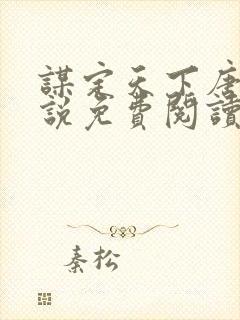 謀定天下唐
說免費閱讀
秦松